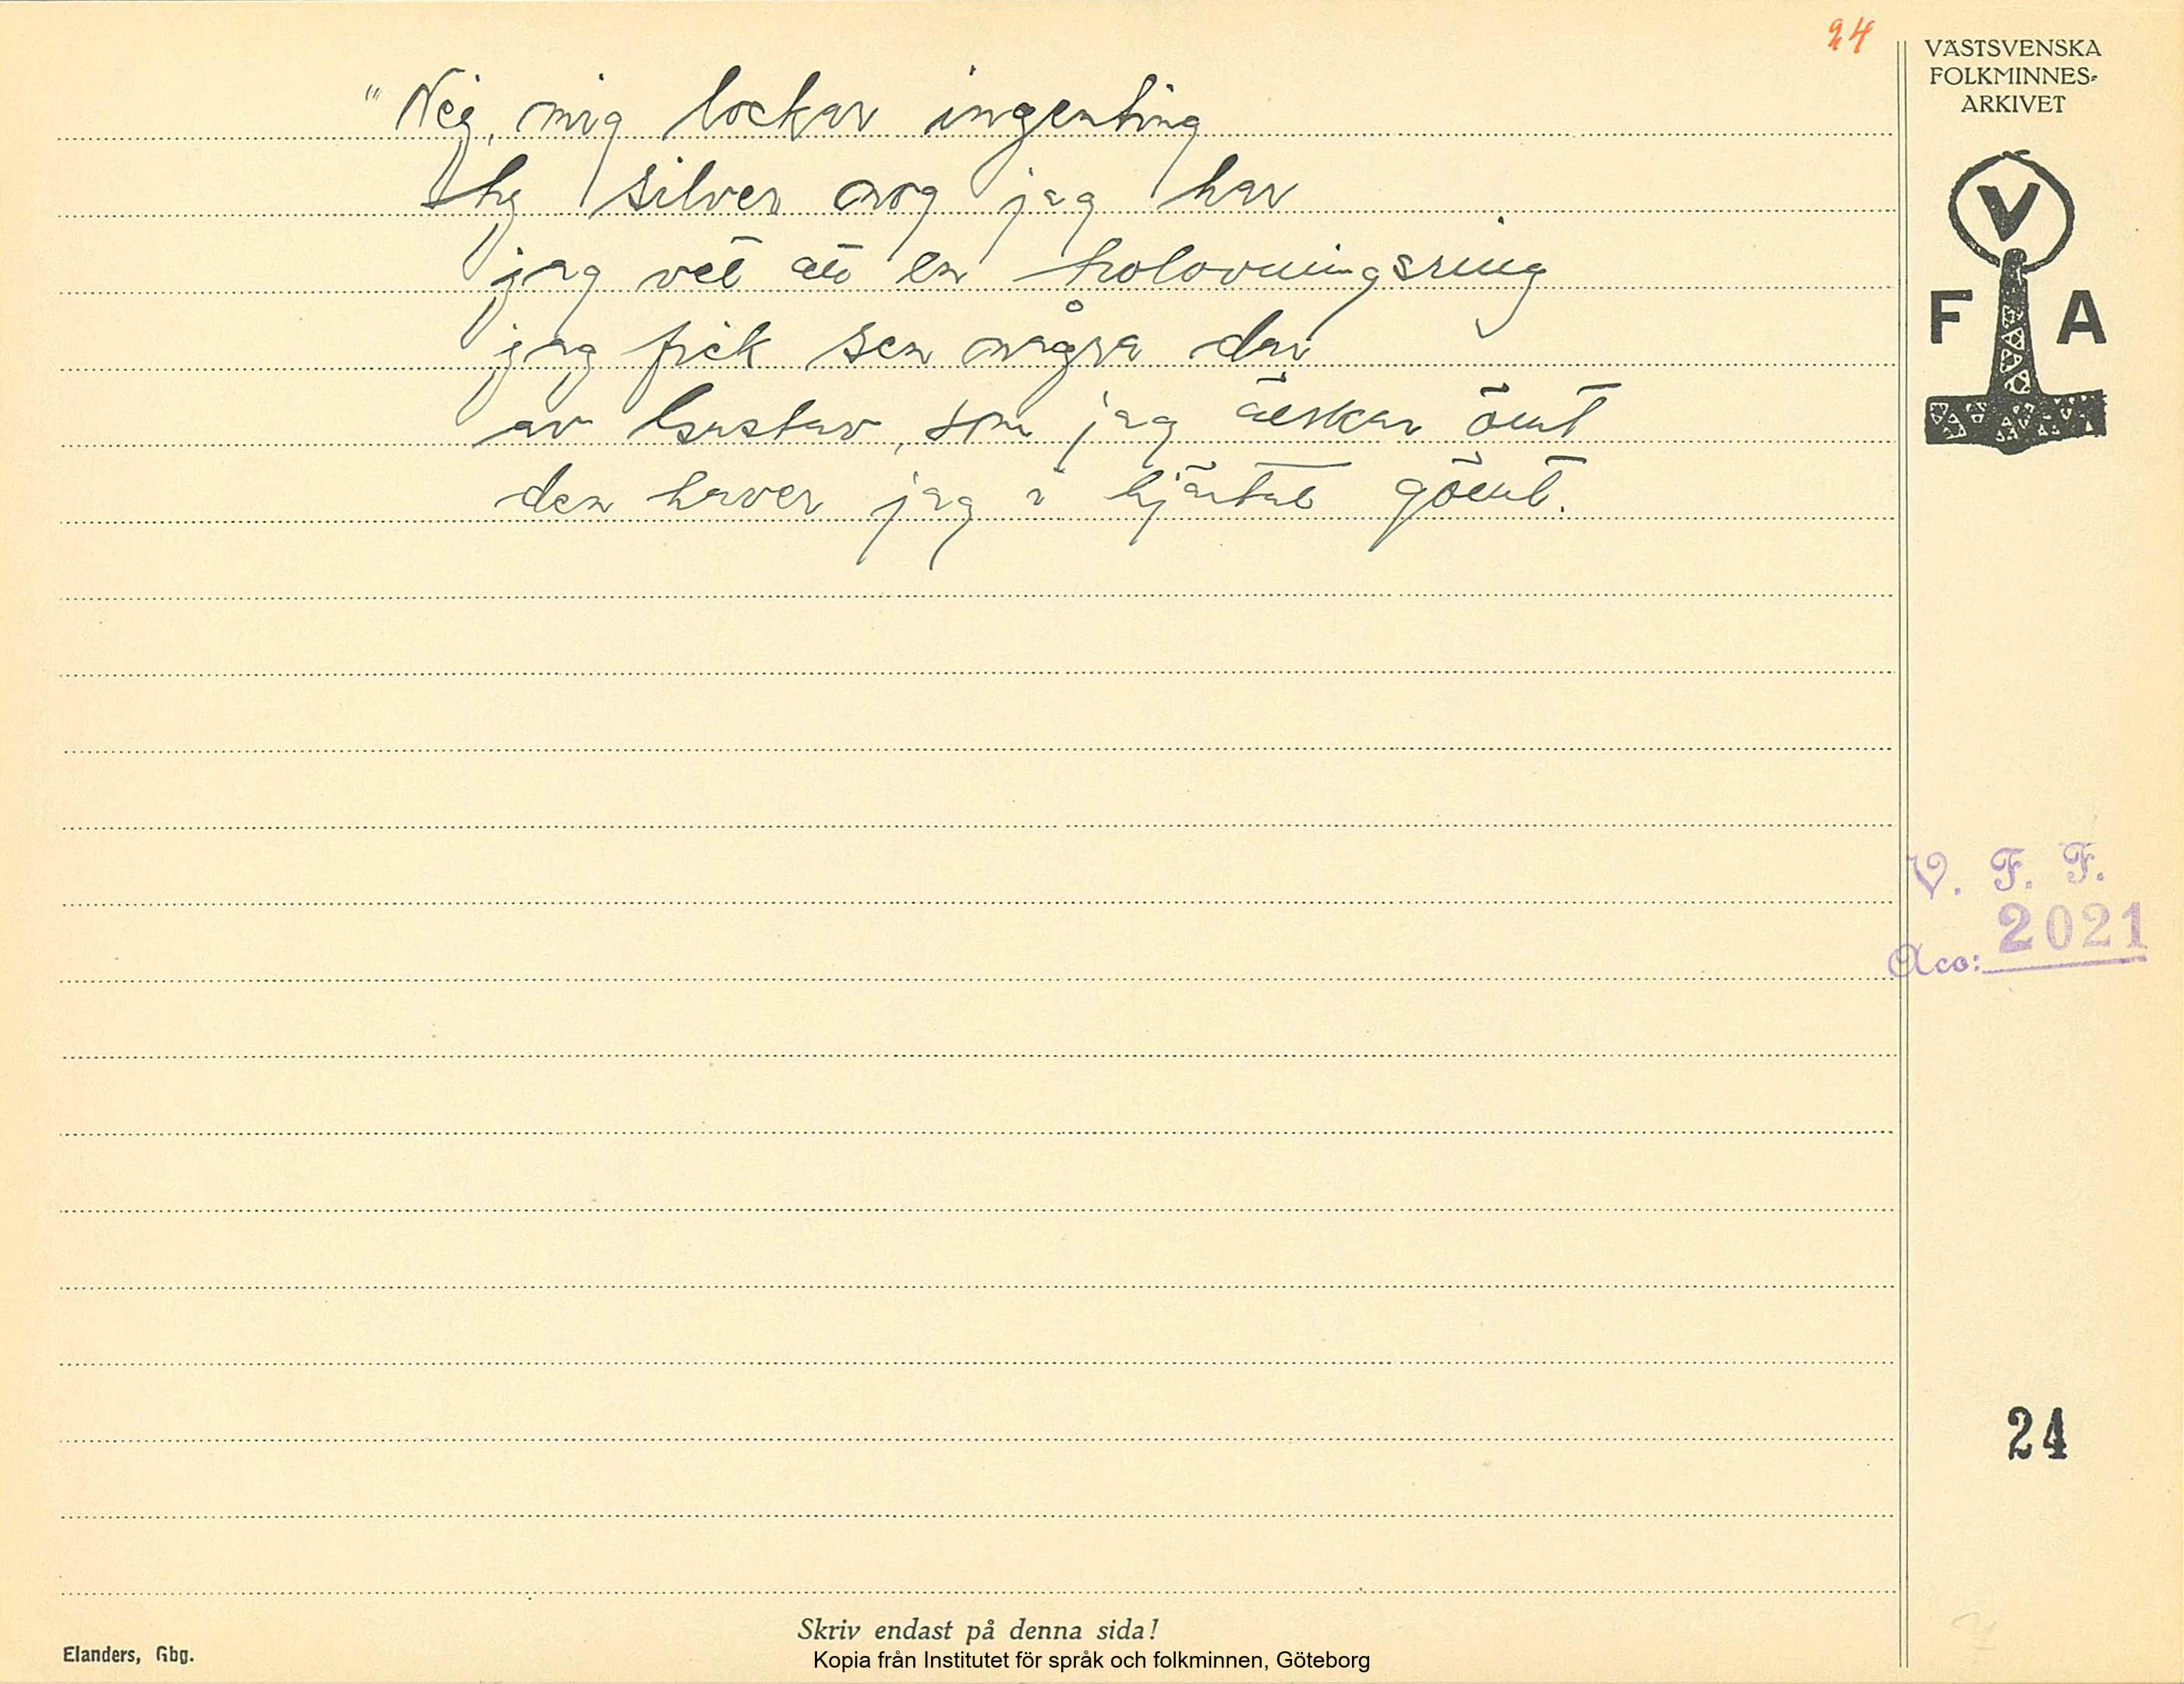 24
VÄSTSVENSKA
FOLKMINNES-
ARKIVET
V
F A
"Nej, mig lockar ingenting
ty silver nog jag har
jag vet att en trolovningsring
jag fick sen några dar
av Gustav, som jag älskar ömt
den haver jag i hjärtat gömt.
V. F. F.
2021
Acc:
24
Skriv endast på denna sida!
Elanders, Gbg.
Kopia från Institutet för språk och folkminnen, Göteborg